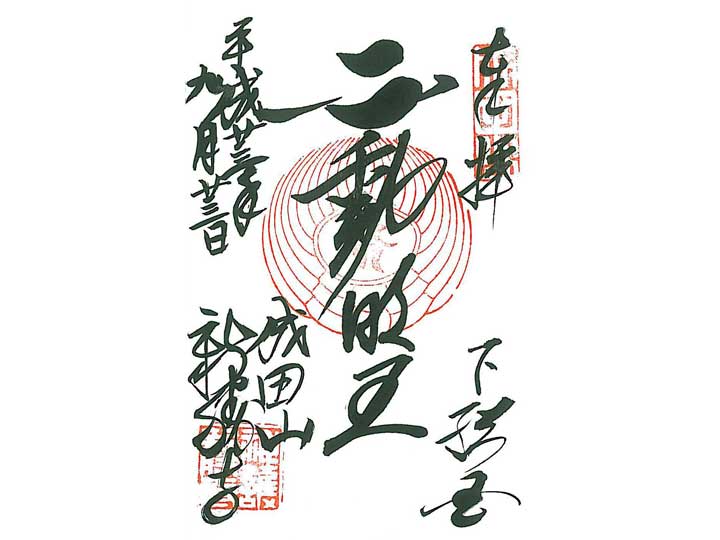 奉拝
下総国
不動明王
平成廿三年
九月廿三日
成田山
新勝寺